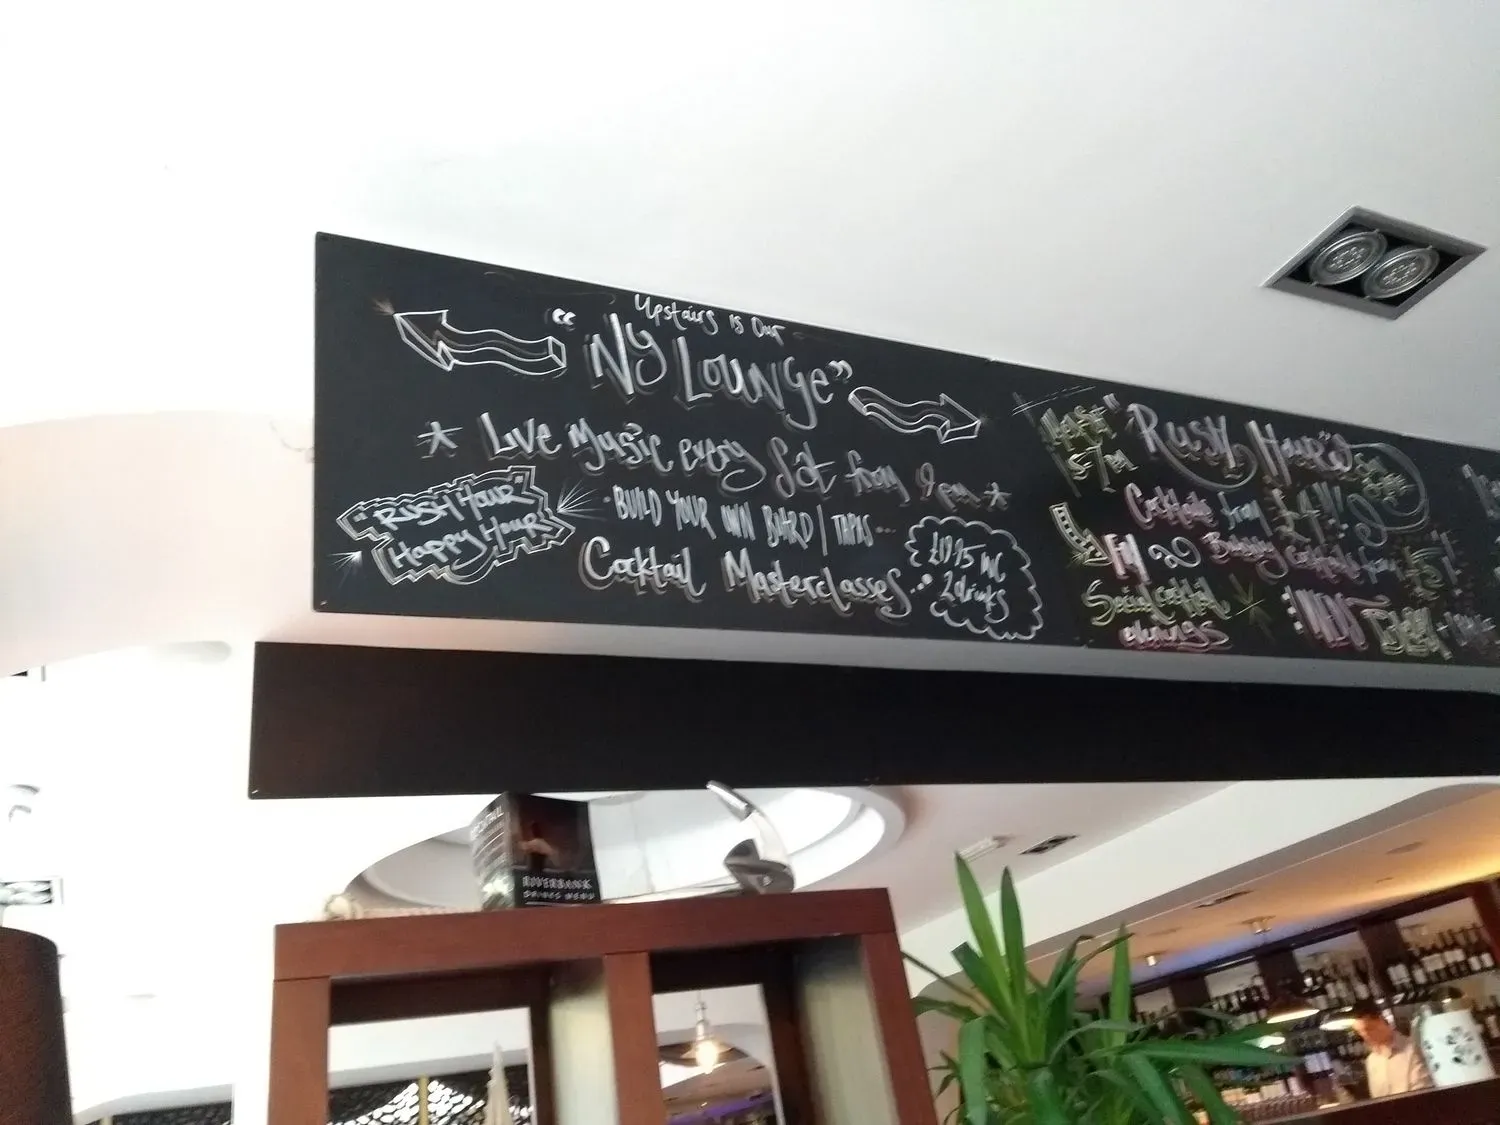 Upstairs is Our
"NY LOUNGE"
* Live Music every Sat from 9pm *
"RUSH HOUR"
Happy Hour
·BUILD YOUR OWN BOARD | TAPAS...
Cocktail Masterclasses...
£19.95 inc
2 drinks
5-7pm
"RUSH HOUR"
Cocktails from £4!!
Bubbly cocktails from £5
Social cocktail
evenings
RIVERBANK
DRINKS MENU